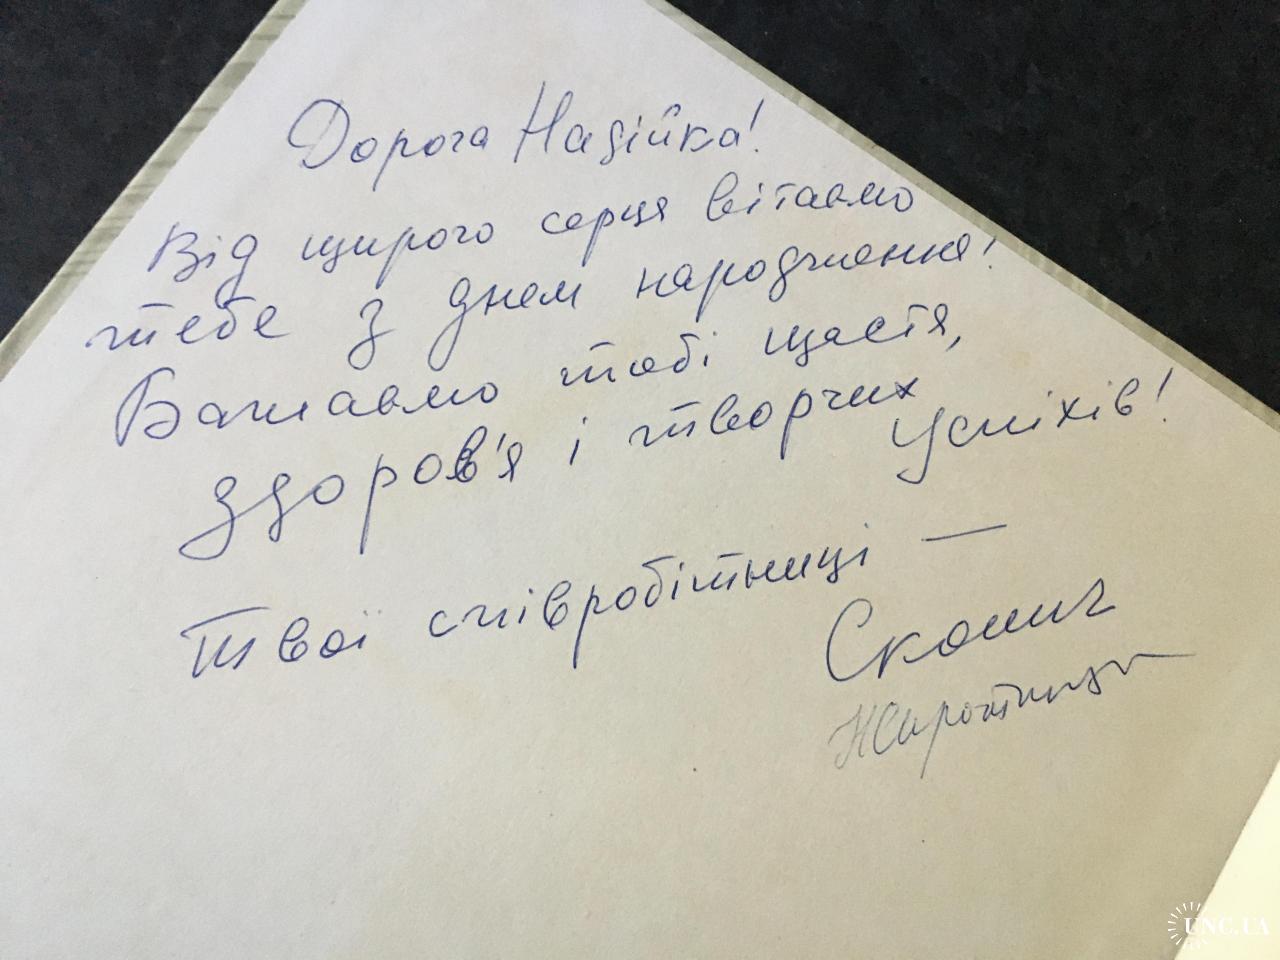 Дорога Надійка!
Від щирого серця вітаємо
тебе з днем народження!
Бажаємо тобі щастя,
здоров'я і творчих
успіхів!
Твої співробітниці —
UNC.UA